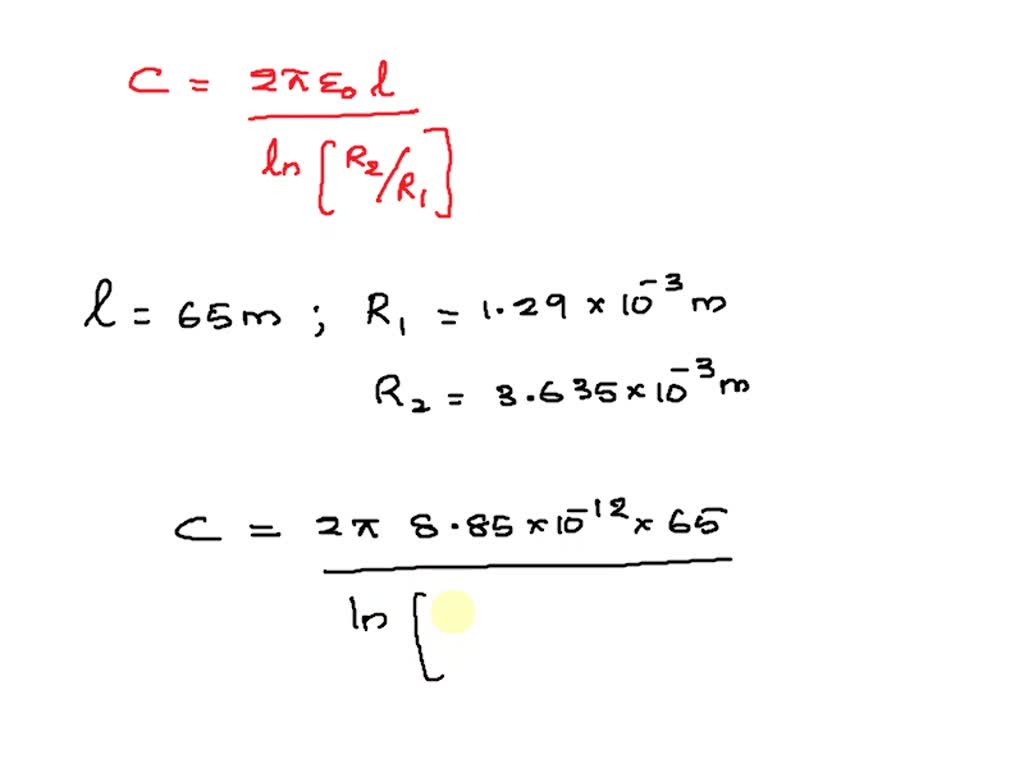 C = 2π ε₀ l
ln [R₂/R₁]
l = 65m ; R₁ = 1.29 × 10⁻³ m
R₂ = 3.635 × 10⁻³ m
C = 2π 8.85 × 10⁻¹² × 65
ln [